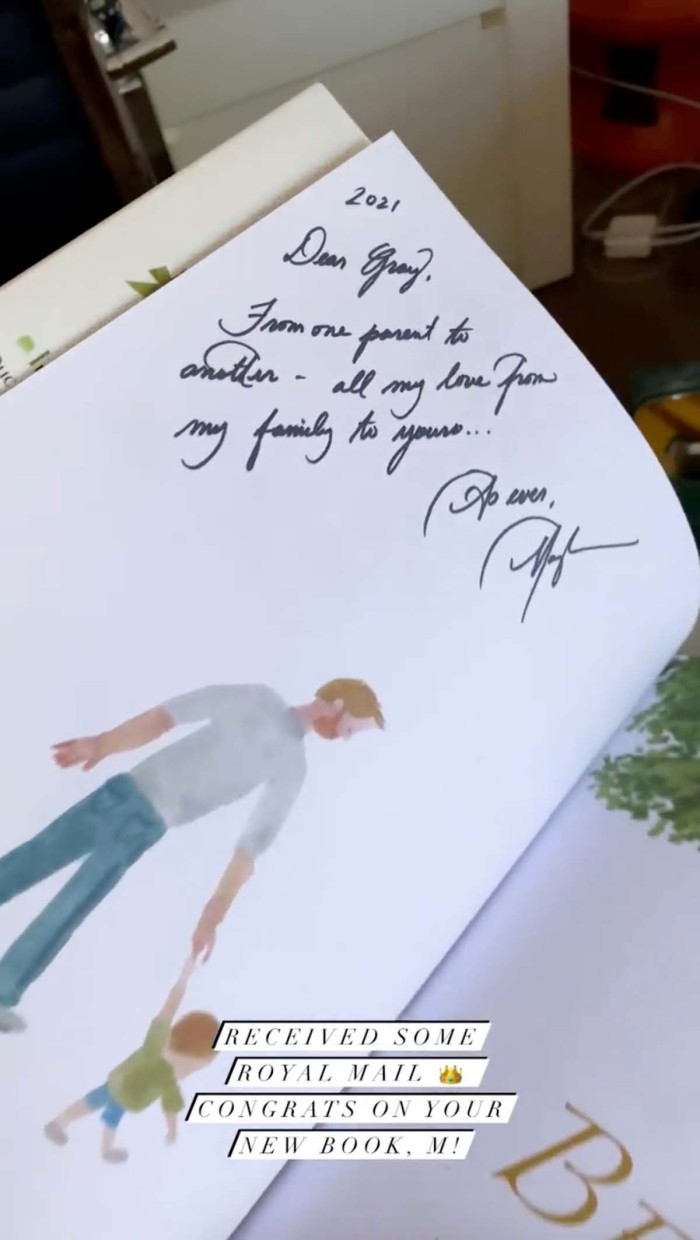 2021
Dear Gray,
From one parent to
another - all my love from
my family to yours...
As ever,
RECEIVED SOME
ROYAL MAIL 👑
CONGRATS ON YOUR
NEW BOOK, M!